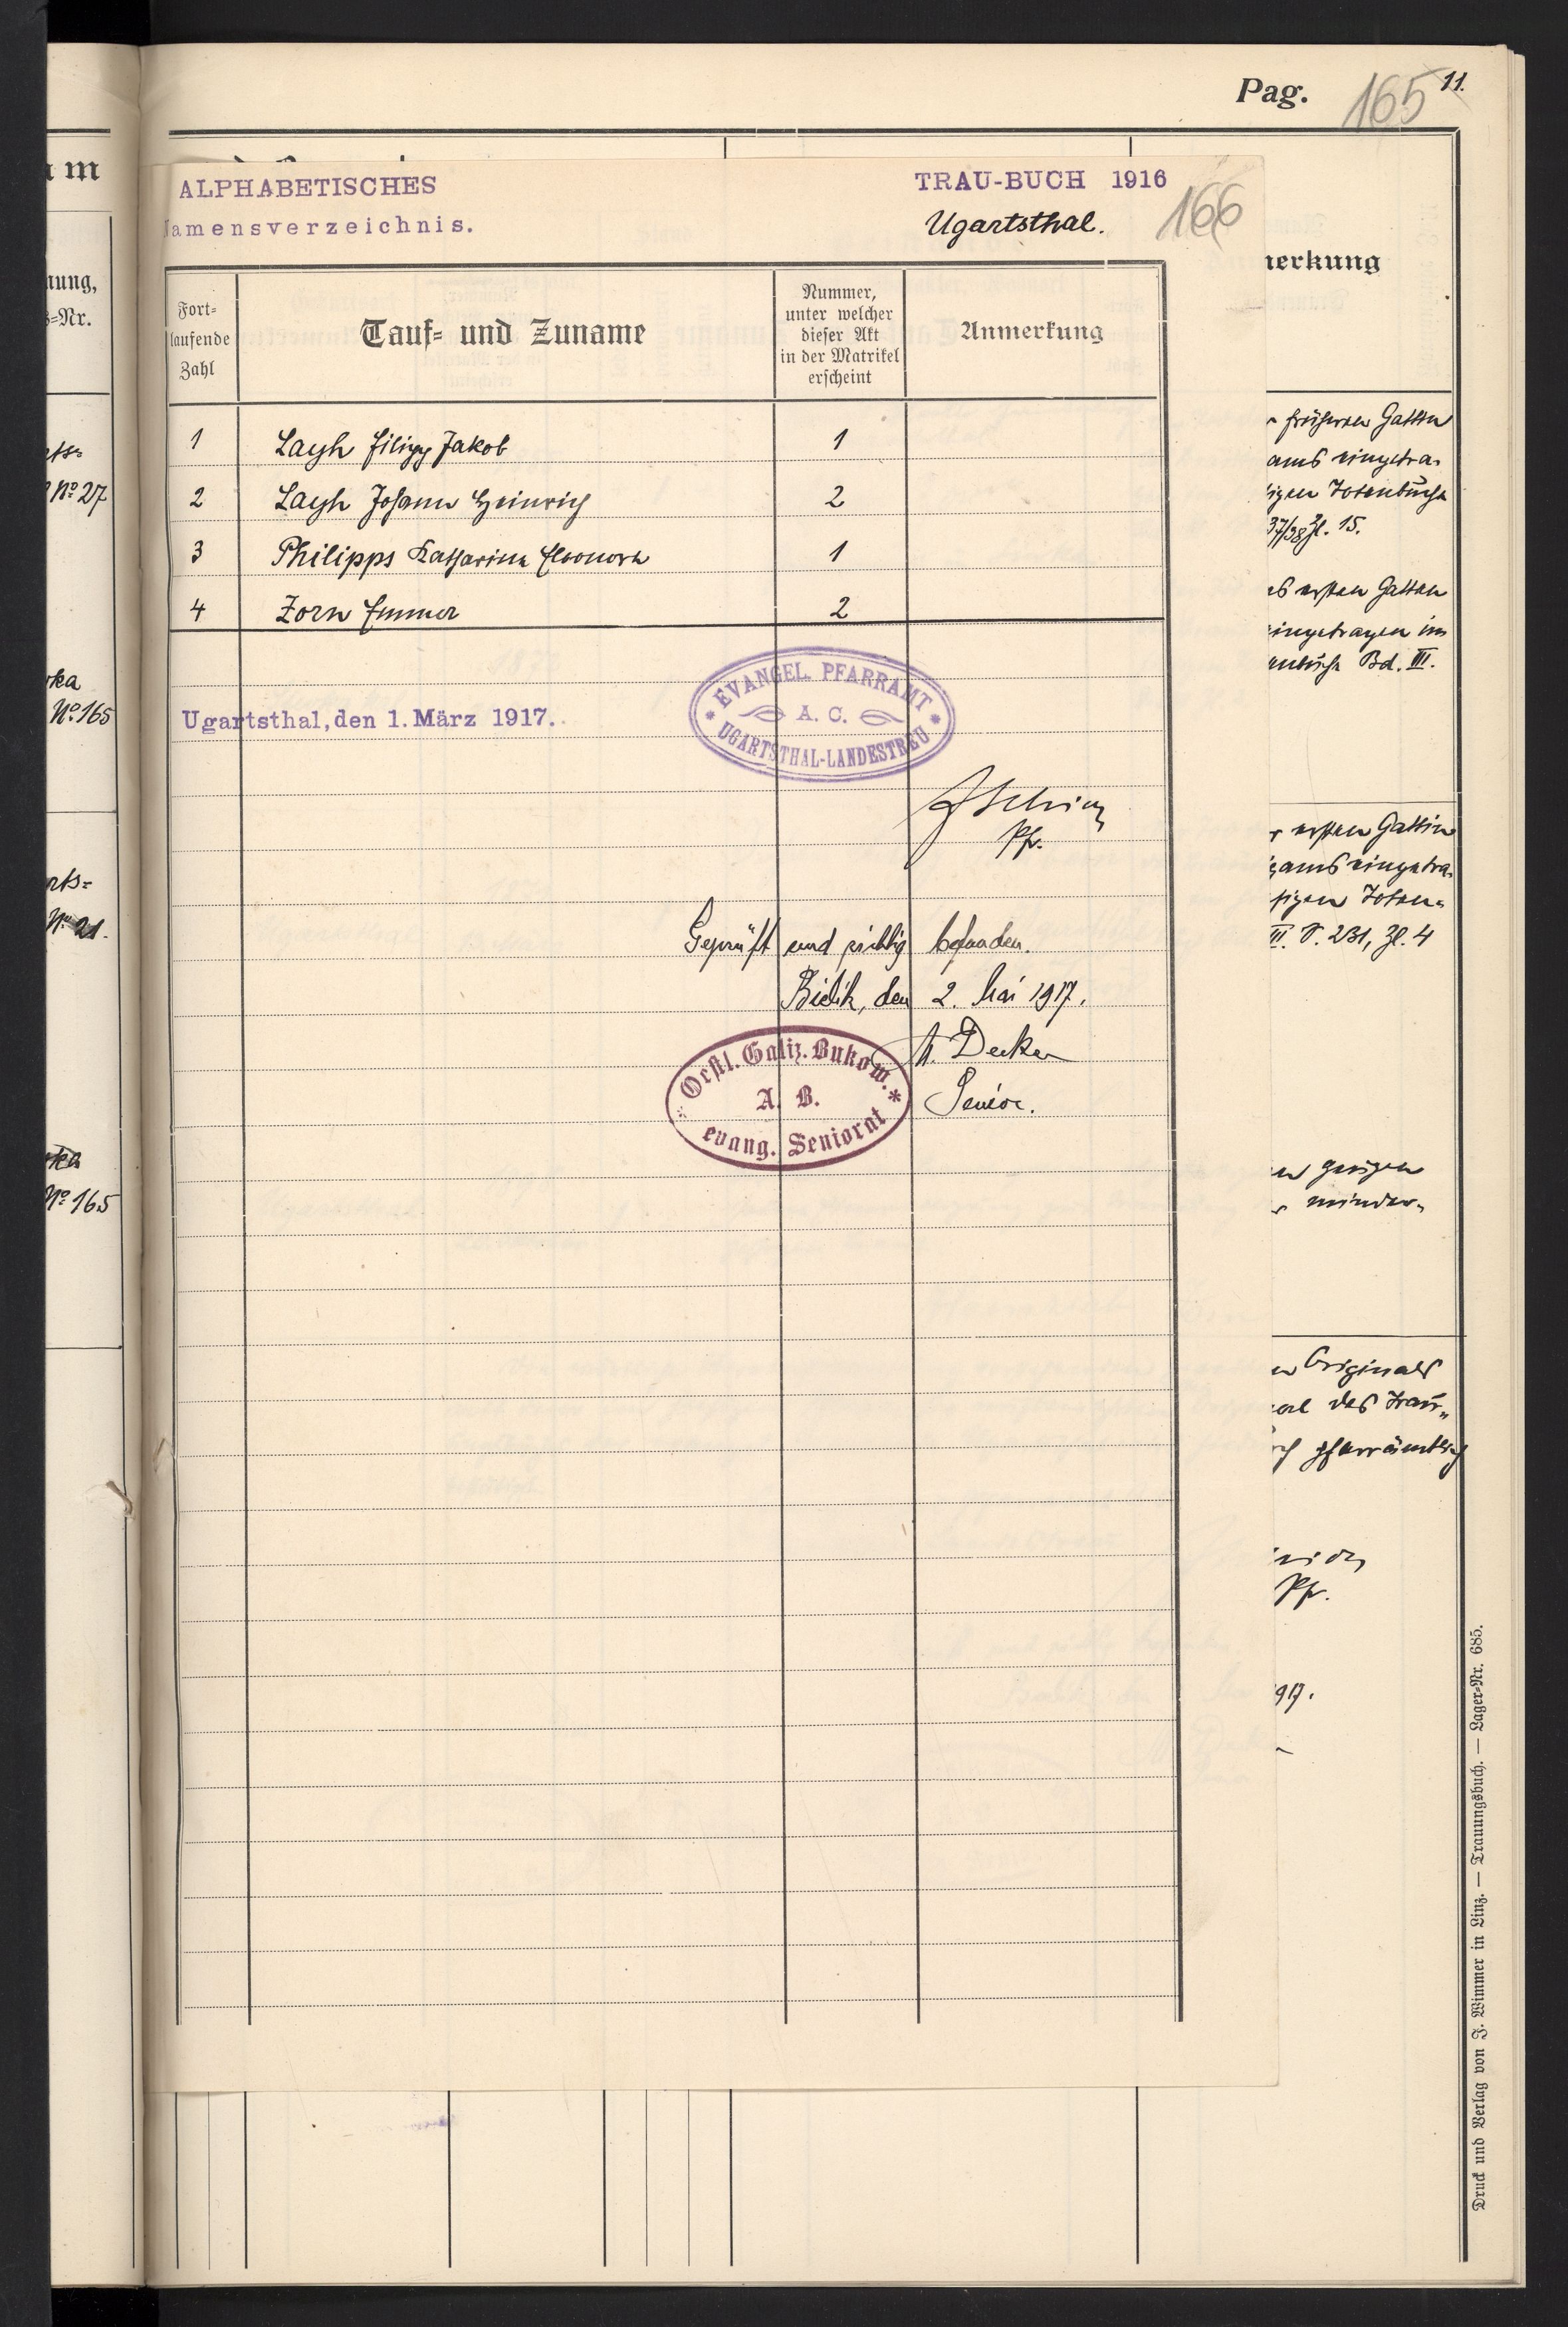 Pag. 165 11.
ALPHABETISCHES
Namensverzeichnis.
TRAU-BUCH 1916
Ugartsthal. 166
Fort-
laufende
Zahl
Tauf- und Zuname
Nummer,
unter welcher
dieser Akt
in der Matrikel
erscheint
Anmerkung
1 Layh Filipp Jakob 1
2 Layh Johann Heinrich 2
3 Philipps Katharina Eleonora 1
4 Zorn Emma 2
EVANGEL. PFARRAMT
A. C.
UGARTSTHAL-LANDESTREU
Ugartsthal, den 1. März 1917.
Pfr.
Geprüft und richtig befunden.
den 2. Mai 1917.
Decker
Senior.
Oestl. Galiz. Bukow.
A. B.
evang. Seniorat
m
nung,
s-Nr.
No 27
ka
No 165
rts-
No 21.
No 165
merkung
früheren Gattin
ams eingetra-
igen Totenbuche
37/38 Zl. 15.
es ersten Gatten
eingetragen im
enbuche Bd. III.
r ersten Gattin
gams eingetra-
sigen Toten-
III. S. 231, Zl. 4
minder-
Originals
des Trau-
pfarrämtlich
Pfr.
917.
Druck und Verlag von J. Wimmer in Linz. — Trauungsbuch. — Lager-Nr. 685.